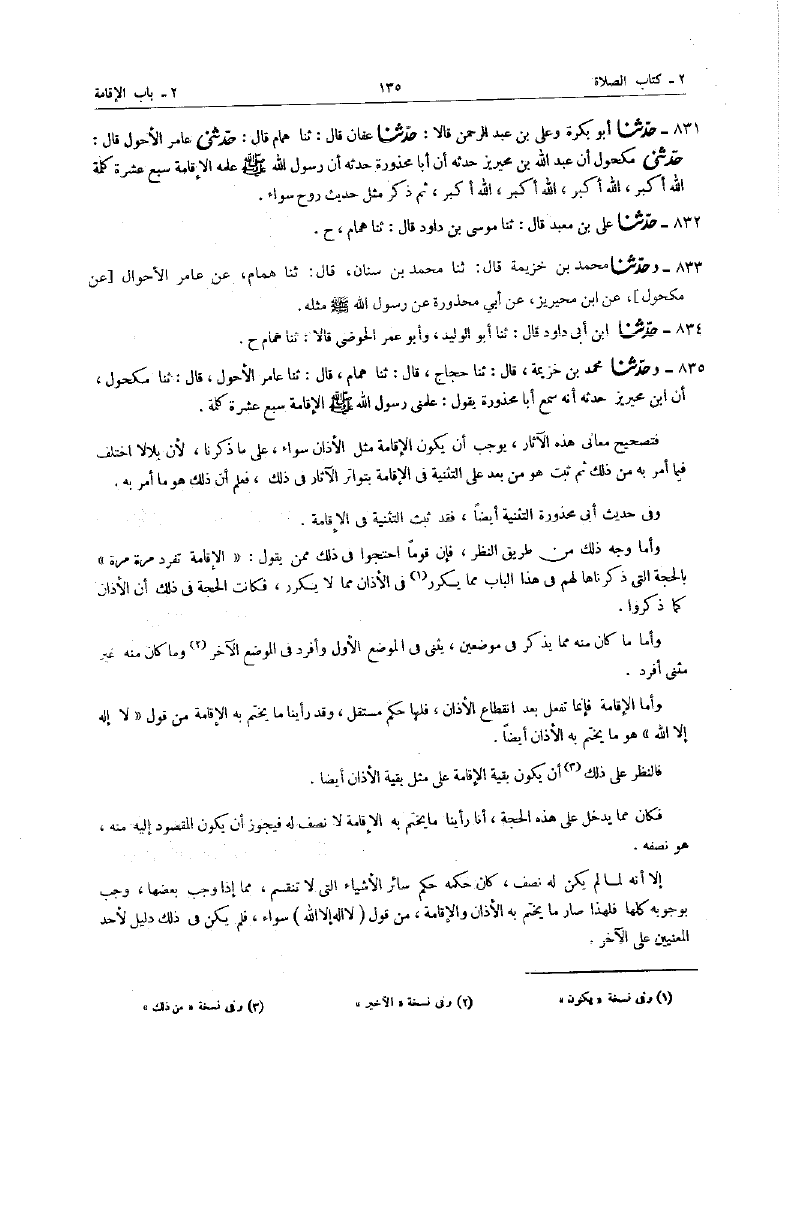 ٢ - كتاب الصلاة
١٣٥
٢ - باب الإقامة
٨٣١ - حدثنا أبو بكرة وعلى بن عبد الرحمن قالا : حدثنا عفان قال : ثنا همام قال : حدثنى عامر الأحول قال :
حدثنى مكحول أن عبد الله بن محيريز حدثه أن أبا محذورة حدثه أن رسول الله ﷺ علمه الإقامة سبع عشرة كلمة
الله أكبر ، الله أكبر ، الله أكبر ، الله أكبر ، ثم ذكر مثل حديث روح سواء .
٨٣٢ - حدثنا على بن معبد قال : ثنا موسى بن داود قال : ثنا همام ، ح .
٨٣٣ - وحدثنا محمد بن خزيمة قال: ثنا محمد بن سنان، قال: ثنا همام، عن عامر الأحوال [عن
مكحول]، عن ابن محيريز، عن أبي محذورة عن رسول الله ﷺ مثله.
٨٣٤ - حدثنا ابن أبى داود قال : ثنا أبو الوليد ، وأبو عمر الحوضى قالا : ثنا همام ح .
٨٣٥ - وحدثنا محمد بن خزيمة ، قال : ثنا حجاج ، قال : ثنا همام ، قال : ثنا عامر الأحول ، قال : ثنا مكحول ،
أن ابن محيريز حدثه أنه سمع أبا محذورة يقول : علمنى رسول الله ﷺ الإقامة سبع عشرة كلمة .
فتصحيح معانى هذه الآثار ، يوجب أن يكون الإقامة مثل الأذان سواء ، على ما ذكرنا ، لأن بلالا اختلف
فيما أمر به من ذلك ثم ثبت هو من بعد على التثنية فى الإقامة بتواتر الآثار فى ذلك ، فعلم أن ذلك هو ما أمر به .
وفى حديث أبى محذورة التثنية أيضاً ، فقد ثبت التثنية فى الإقامة .
وأما وجه ذلك من طريق النظر ، فإن قوماً احتجوا فى ذلك ممن يقول : « الإقامة تفرد مرة مرة »
بالحجة التى ذكرناها لهم فى هذا الباب مما يكرر(١) فى الأذان مما لا يكرر ، فكانت الحجة فى ذلك أن الأذان
كما ذكروا .
وأما ما كان منه مما يذكر فى موضعين ، يثنى فى الموضع الأول وأفرد فى الموضع الآخر (٢) وما كان منه غير
مثنى أفرد .
وأما الإقامة فإنما تفعل بعد انقطاع الأذان ، فلها حكم مستقل ، وقد رأينا ما يختم به الإقامة من قول « لا إله
إلا الله » هو ما يختم به الأذان أيضاً .
فالنظر على ذلك (٣) أن يكون بقية الإقامة على مثل بقية الأذان أيضا .
فكان مما يدخل على هذه الحجة ، أنا رأينا مايختم به الإقامة لا نصف له فيجوز أن يكون المقصود إليه منه ،
هو نصفه .
إلا أنه لما لم يكن له نصف ، كان حكمه حكم سائر الأشياء التى لا تنقسم ، مما إذا وجب بعضها ، وجب
بوجوبه كلها فلهذا صار ما يختم به الأذان والإقامة ، من قول ( لاإله إلا الله ) سواء ، فلم يكن فى ذلك دليل لأحد
المعنيين على الآخر .
(١) وفى نسخة « يكون »
(٢) وفى نسخة « الأخير »
(٣) وفى نسخة « من ذلك »